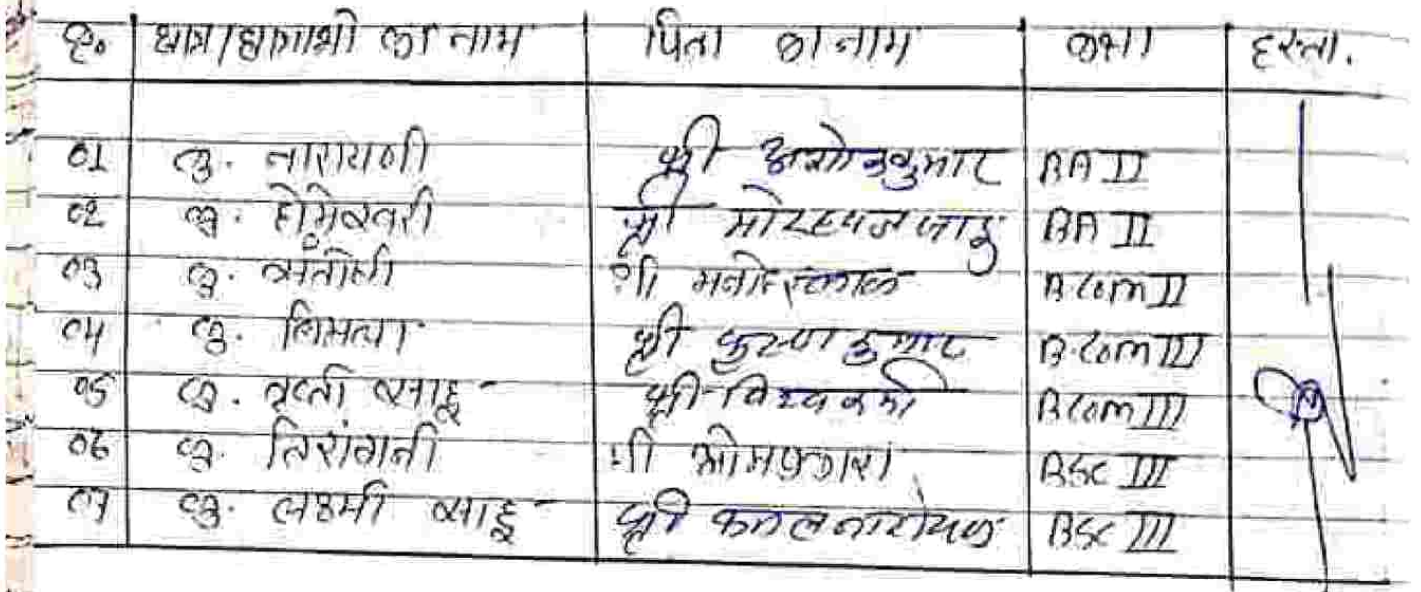 क्र. छात्र/छात्राओं का नाम पिता का नाम कक्षा हस्ता.
01 कु. नारायणी श्री अशोक कुमार BA II
02 कु. होमेश्वरी श्री मोरध्वज साहू BA II
03 कु. संतोषी श्री मनोहरलाल B.Com II
04 कु. श्री कृष्ण कुमार B.Com III
05 कु. साहू श्री विश्वकर्मा B.Com III
06 कु. श्री ओमप्रकाश BSC III
07 कु. लक्ष्मी साहू श्री कमलनारायण BSC III